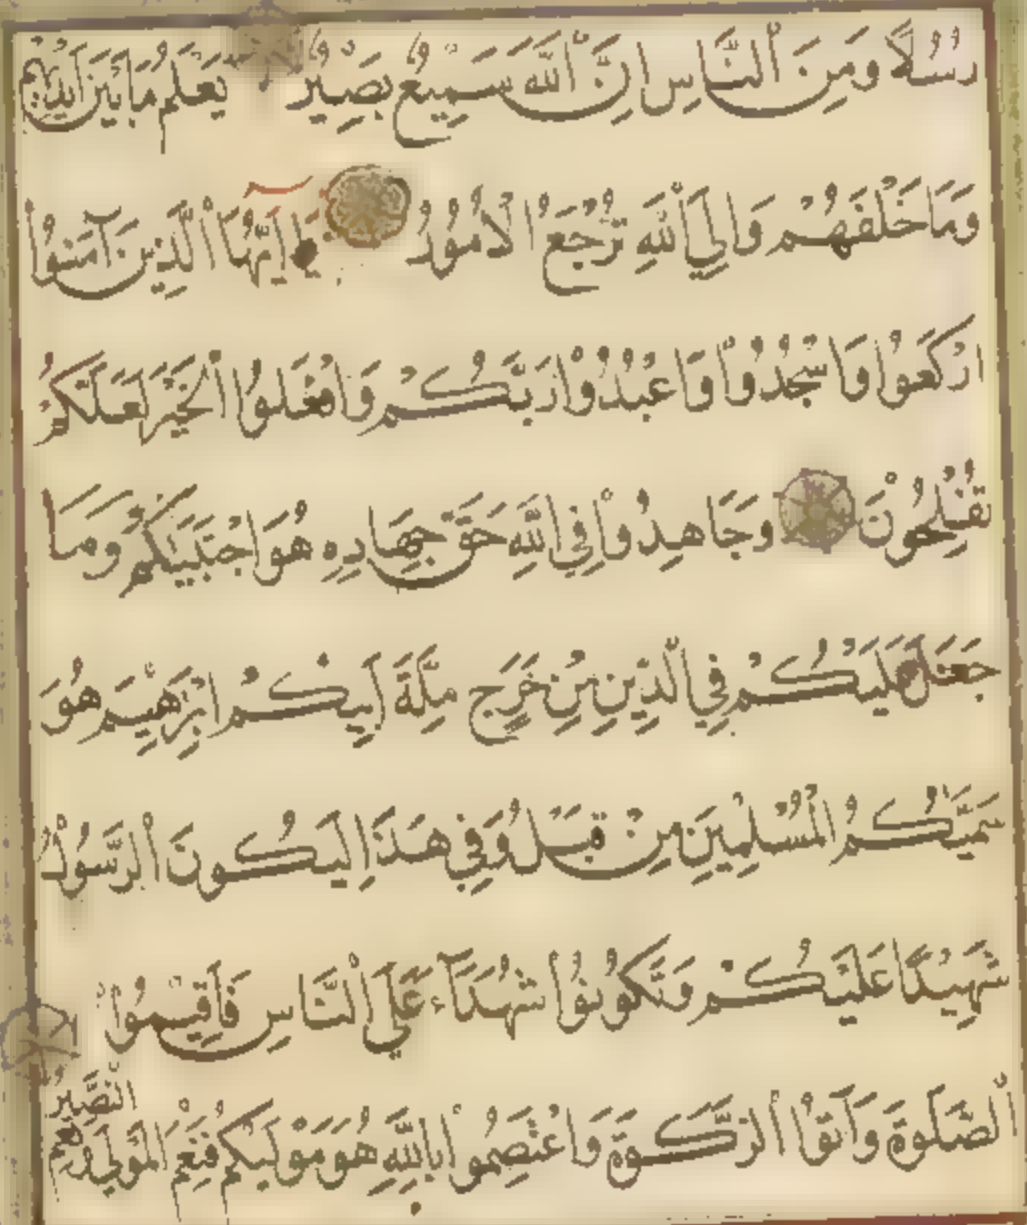 رُسُلًا وَمِنَ ٱلنَّاسِ إِنَّ ٱللَّهَ سَمِيعٌ بَصِيرٌ يَعْلَمُ مَا بَيْنَ أَيْدِيهِمْ
وَمَا خَلْفَهُمْ وَإِلَى ٱللَّهِ تُرْجَعُ الْأُمُورُ يَا أَيُّهَا ٱلَّذِينَ آمَنُوا
ارْكَعُوا وَاسْجُدُوا وَاعْبُدُوا رَبَّكُمْ وَافْعَلُوا ٱلْخَيْرَ لَعَلَّكُمْ
تُفْلِحُونَ وَجَاهِدُوا فِي ٱللَّهِ حَقَّ جِهَادِهِ هُوَ اجْتَبَيٰكُمْ وَمَا
جَعَلَ عَلَيْكُمْ فِي ٱلدِّينِ مِنْ حَرَجٍ مِلَّةَ أَبِيكُمْ إِبْرَٰهِيمَ هُوَ
سَمَّيٰكُمُ الْمُسْلِمِينَ مِنْ قَبْلُ وَفِي هَٰذَا لِيَكُونَ ٱلرَّسُولُ
شَهِيدًا عَلَيْكُمْ وَتَكُونُوا شُهَدَآءَ عَلَى ٱلنَّاسِ فَأَقِيمُوا
ٱلصَّلَوٰةَ وَآتُوا ٱلزَّكَوٰةَ وَاعْتَصِمُوا بِاللَّهِ هُوَ مَوْلَيٰكُمْ فَنِعْمَ الْمَوْلَى وَنِعْمَ
النَّصِيرُ